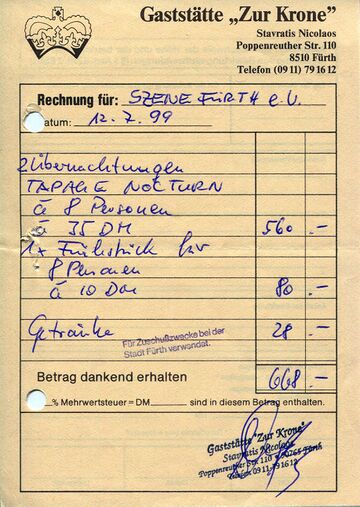 Gaststätte „Zur Krone"
Stavratis Nicolaos
Poppenreuther Str. 110
8510 Fürth
Telefon (09 11) 79 16 12
Rechnung für: SZENE FÜRTH e.V.
atum: 12.7.99
2 Übernachtungen
TAPAGE NOCTURN
à 8 Personen
à 35 DM 560.-
1x Frühstück für
8 Personen
à 10 DM 80.-
Getränke 28.-
Für Zuschußzwecke bei der
Stadt Fürth verwendet.
Betrag dankend erhalten 668.-
% Mehrwertsteuer = DM sind in diesem Betrag enthalten.
Gaststätte "Zur Krone"
Stavratis Nicolaos
Poppenreuther Str 110 • 90765 Fürth
Telefon 09 11-79 16 12